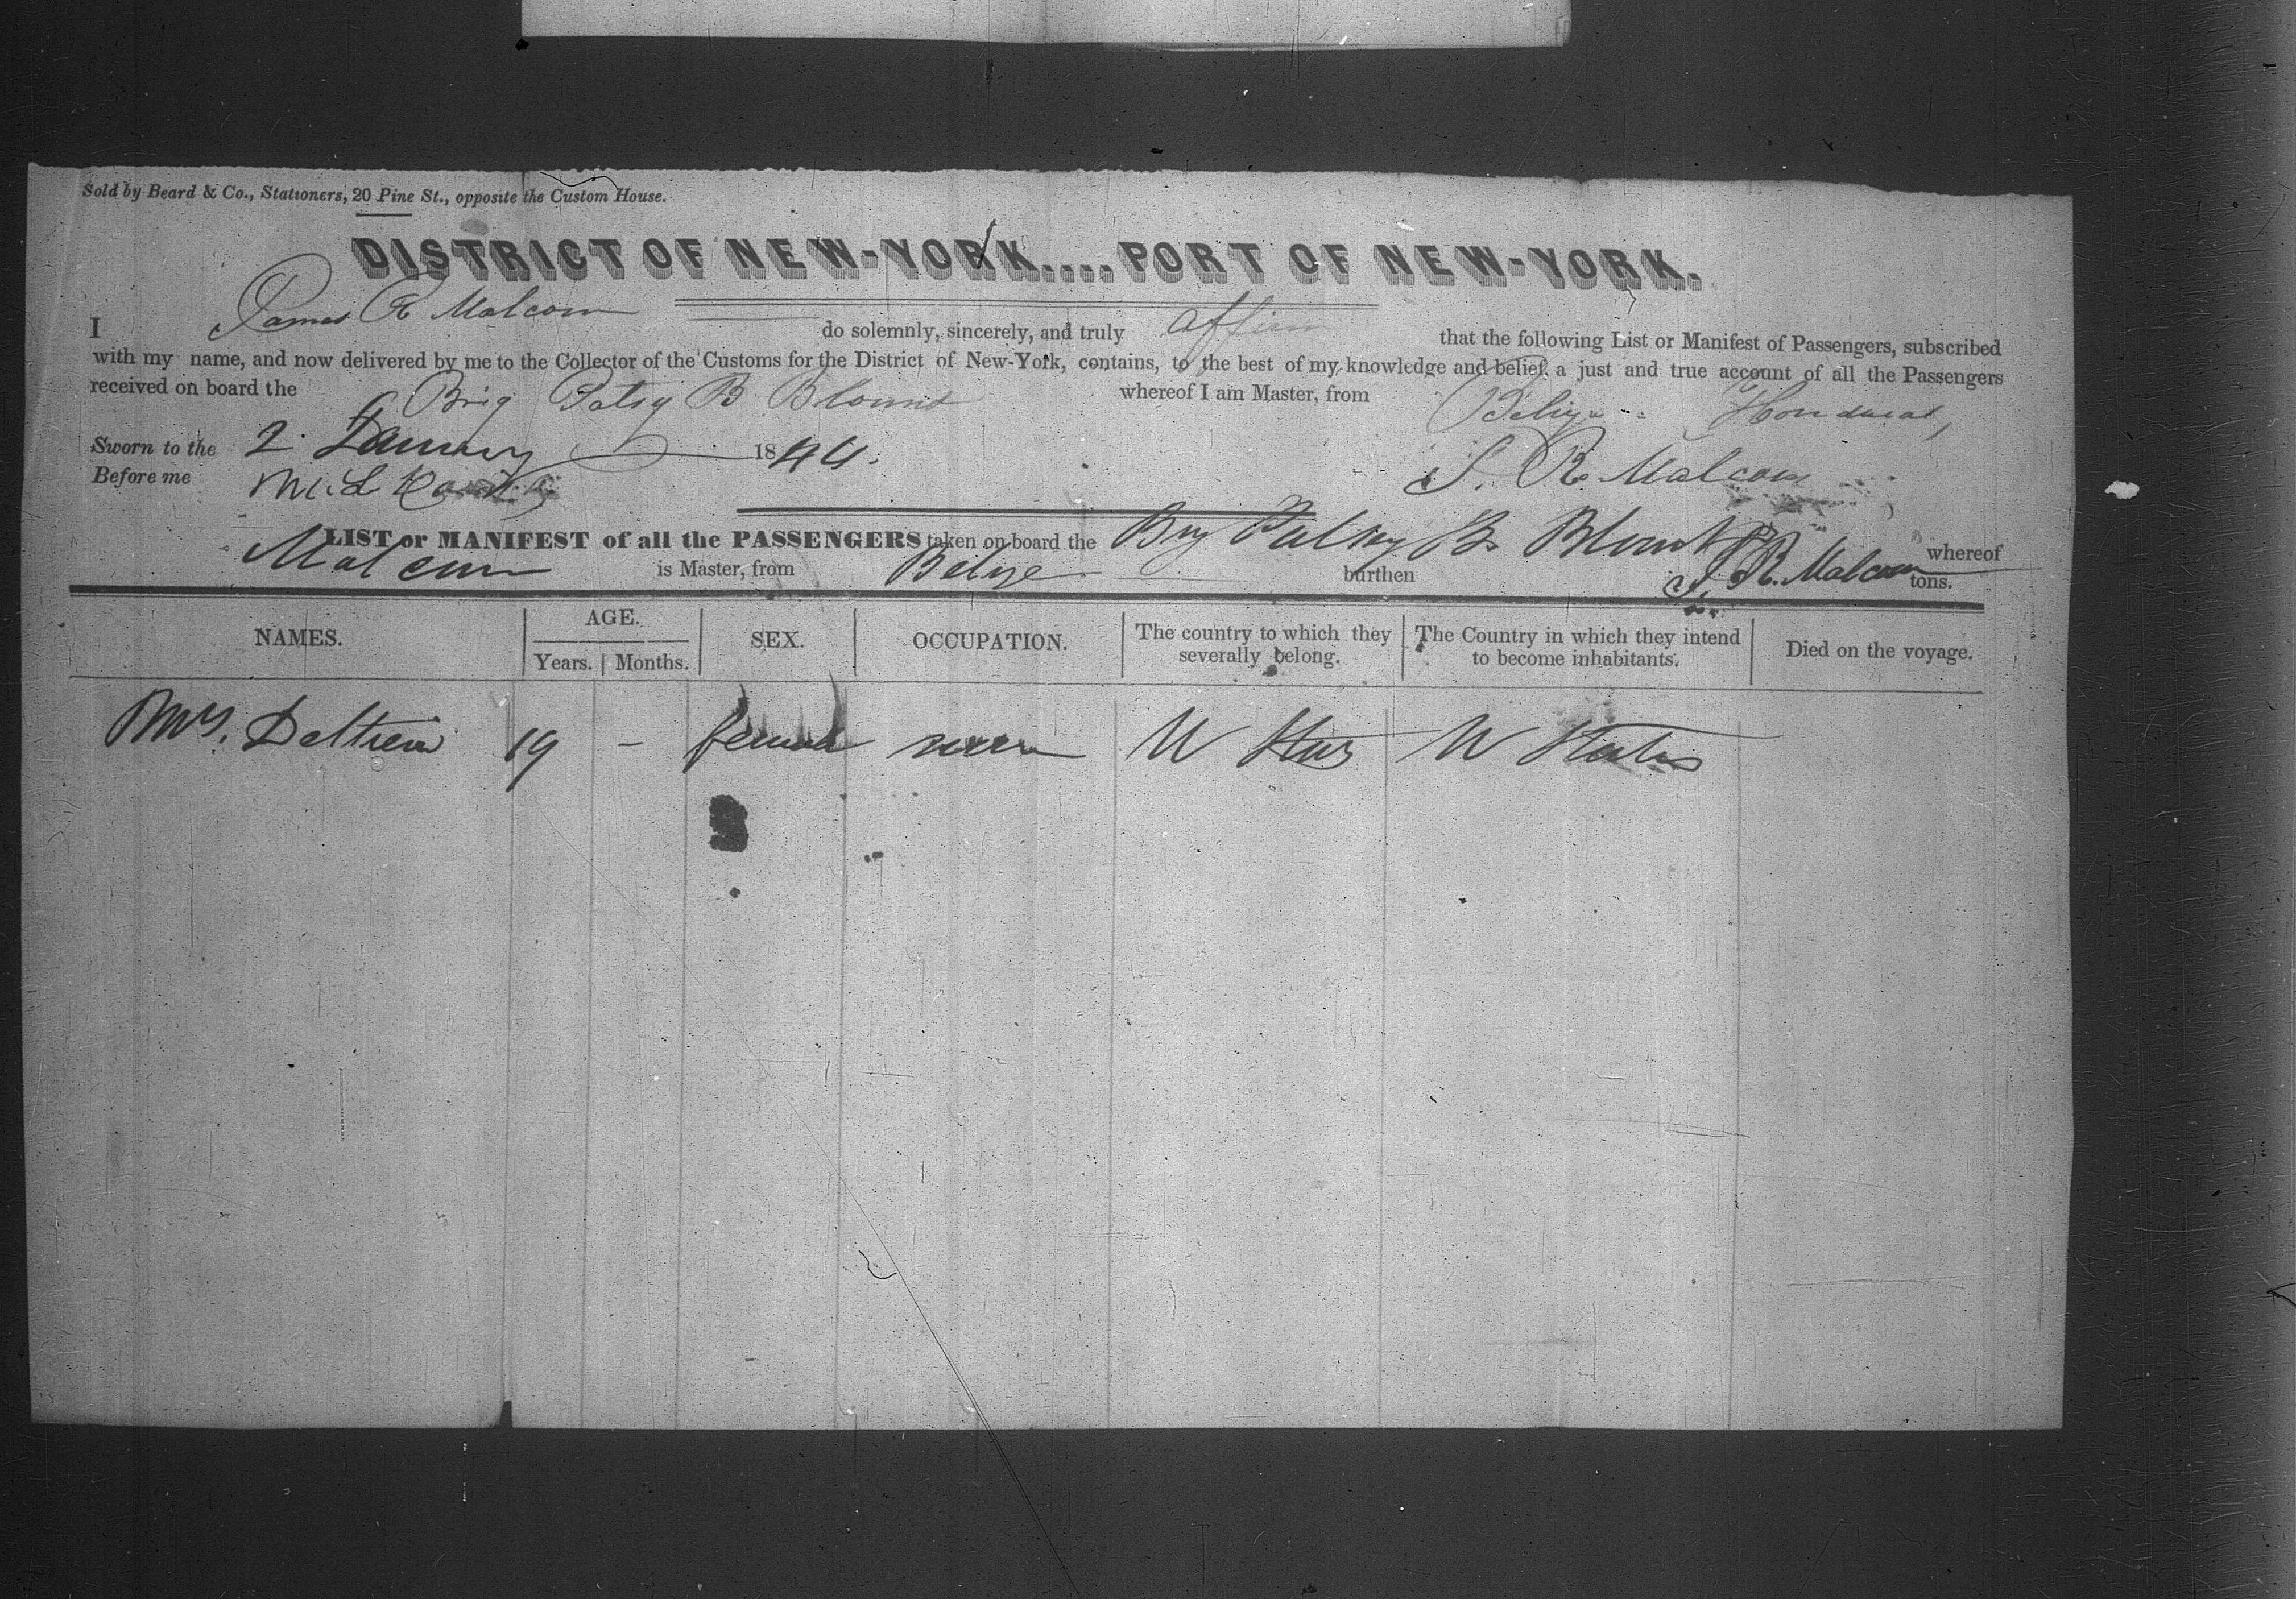 Sold by Beard & Co., Stationers, 20 Pine St., opposite the Custom House.
DISTRICT OF NEW-YORK....PORT OF NEW-YORK.
I James R Malcom do solemnly, sincerely, and truly affirm that the following List or Manifest of Passengers, subscribed
with my name, and now delivered by me to the Collector of the Customs for the District of New-York, contains, to the best of my knowledge and belief, a just and true account of all the Passengers
received on board the Brig Patsy B Blount whereof I am Master, from Belize Honduras,
Sworn to the 2 January 1844.
J. R. Malcom
Before me
LIST or MANIFEST of all the PASSENGERS taken on board the Brig Patsy B. Blount whereof
Malcom is Master, from Belize burthen J. R. Malcom tons.
NAMES. AGE. Years. Months. SEX. OCCUPATION. The country to which they severally belong. The Country in which they intend to become inhabitants. Died on the voyage.
Mrs. 19 - female U States U States